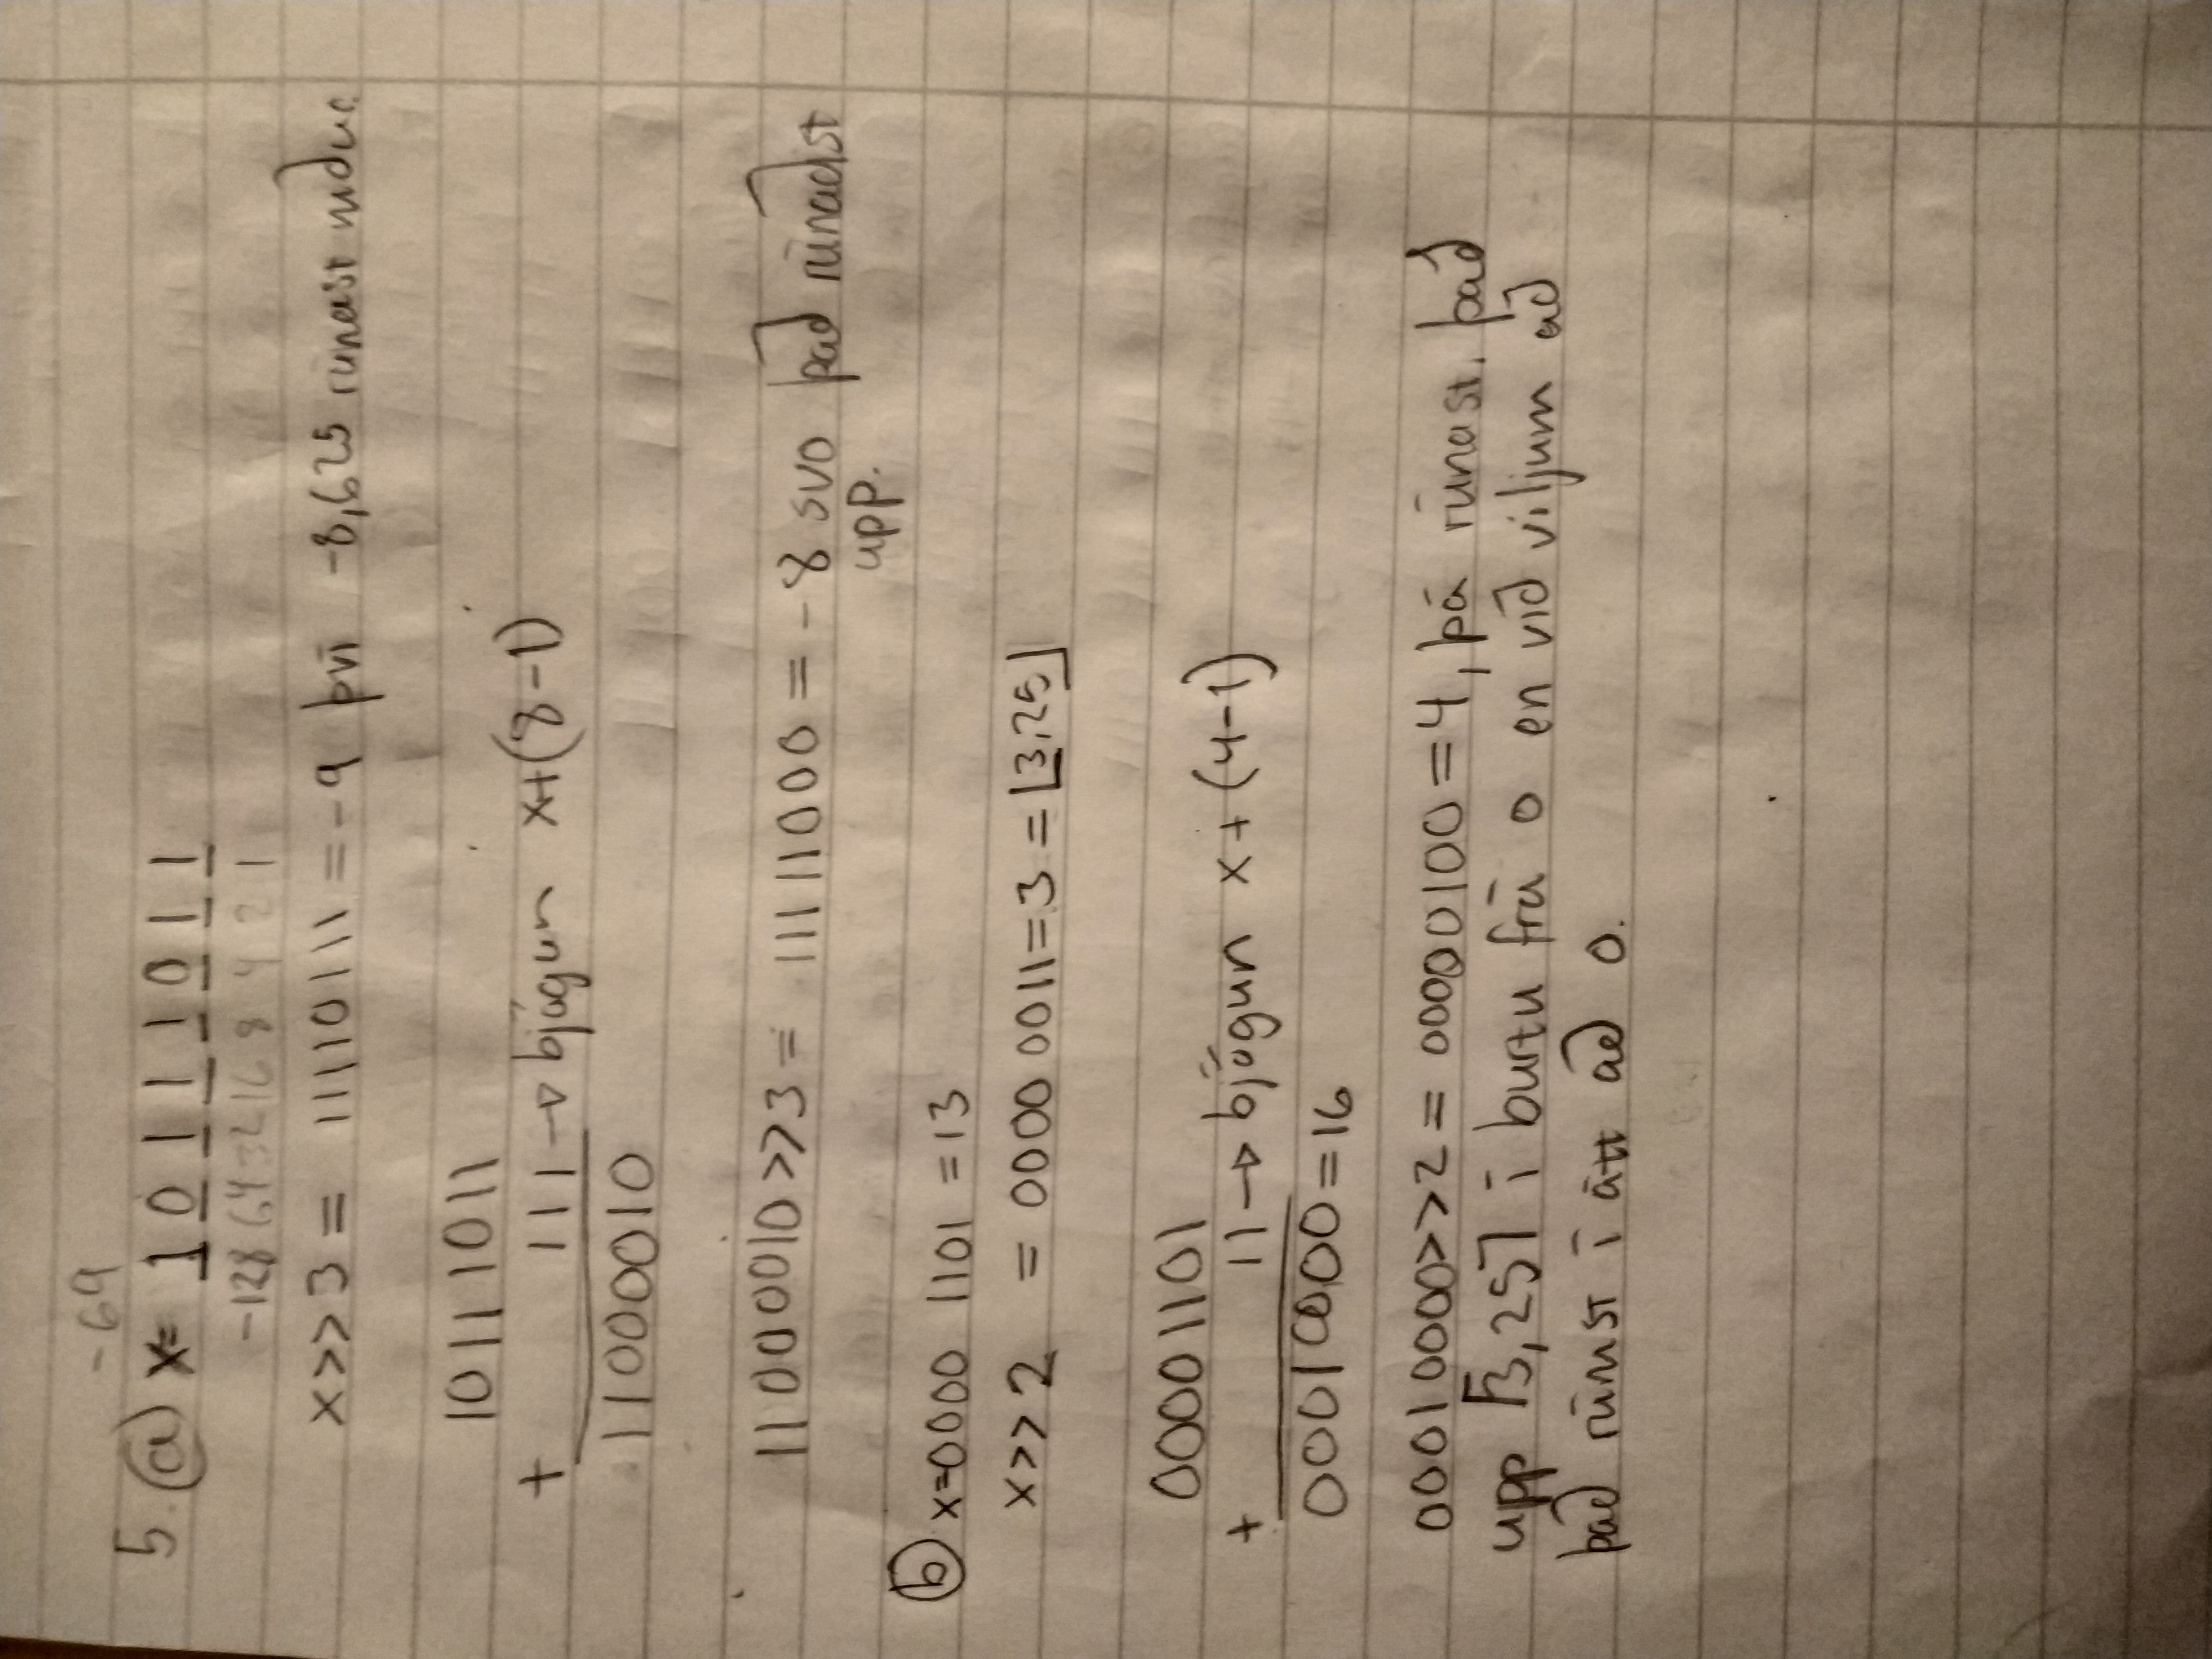 -69
5. (a) x= 1 0 1 1 1 0 1 1
-128 64 32 16 8 4 2 1
x>>3 = 11110111 = -9 því -8,625 rúnast niður
10111011
+ 111 → bjögun x+(8-1)
11000010
11000010>>3 = 11111000 = -8 svo það rúnaðist
upp.
(b) x=0000 1101 =13
x>>2 = 0000 0011=3 = ⌊3,25⌋
00001101
+ 11 → bjögun x+(4-1)
00010000=16
00010000>>2 = 00000100 =4, þá rúnast það
upp ⌈3,25⌉ í burtu frá 0 en við viljum að
það rúnist í átt að 0.